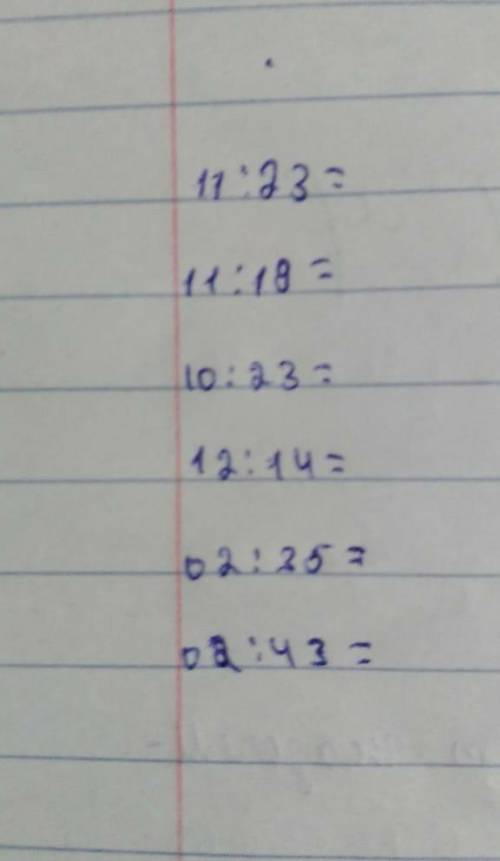 11:23=
11:18=
10:23=
12:14=
02:25=
02:43=